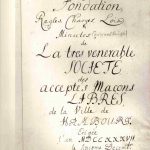 Fondation,
Regles Changes Loix
Minutes
de
La tres venerable
SOCIETE
des
acceptés Maçons
LIBRES
de la Ville de
HAMBOURG
Erigée
l'an MDCCXXXVII